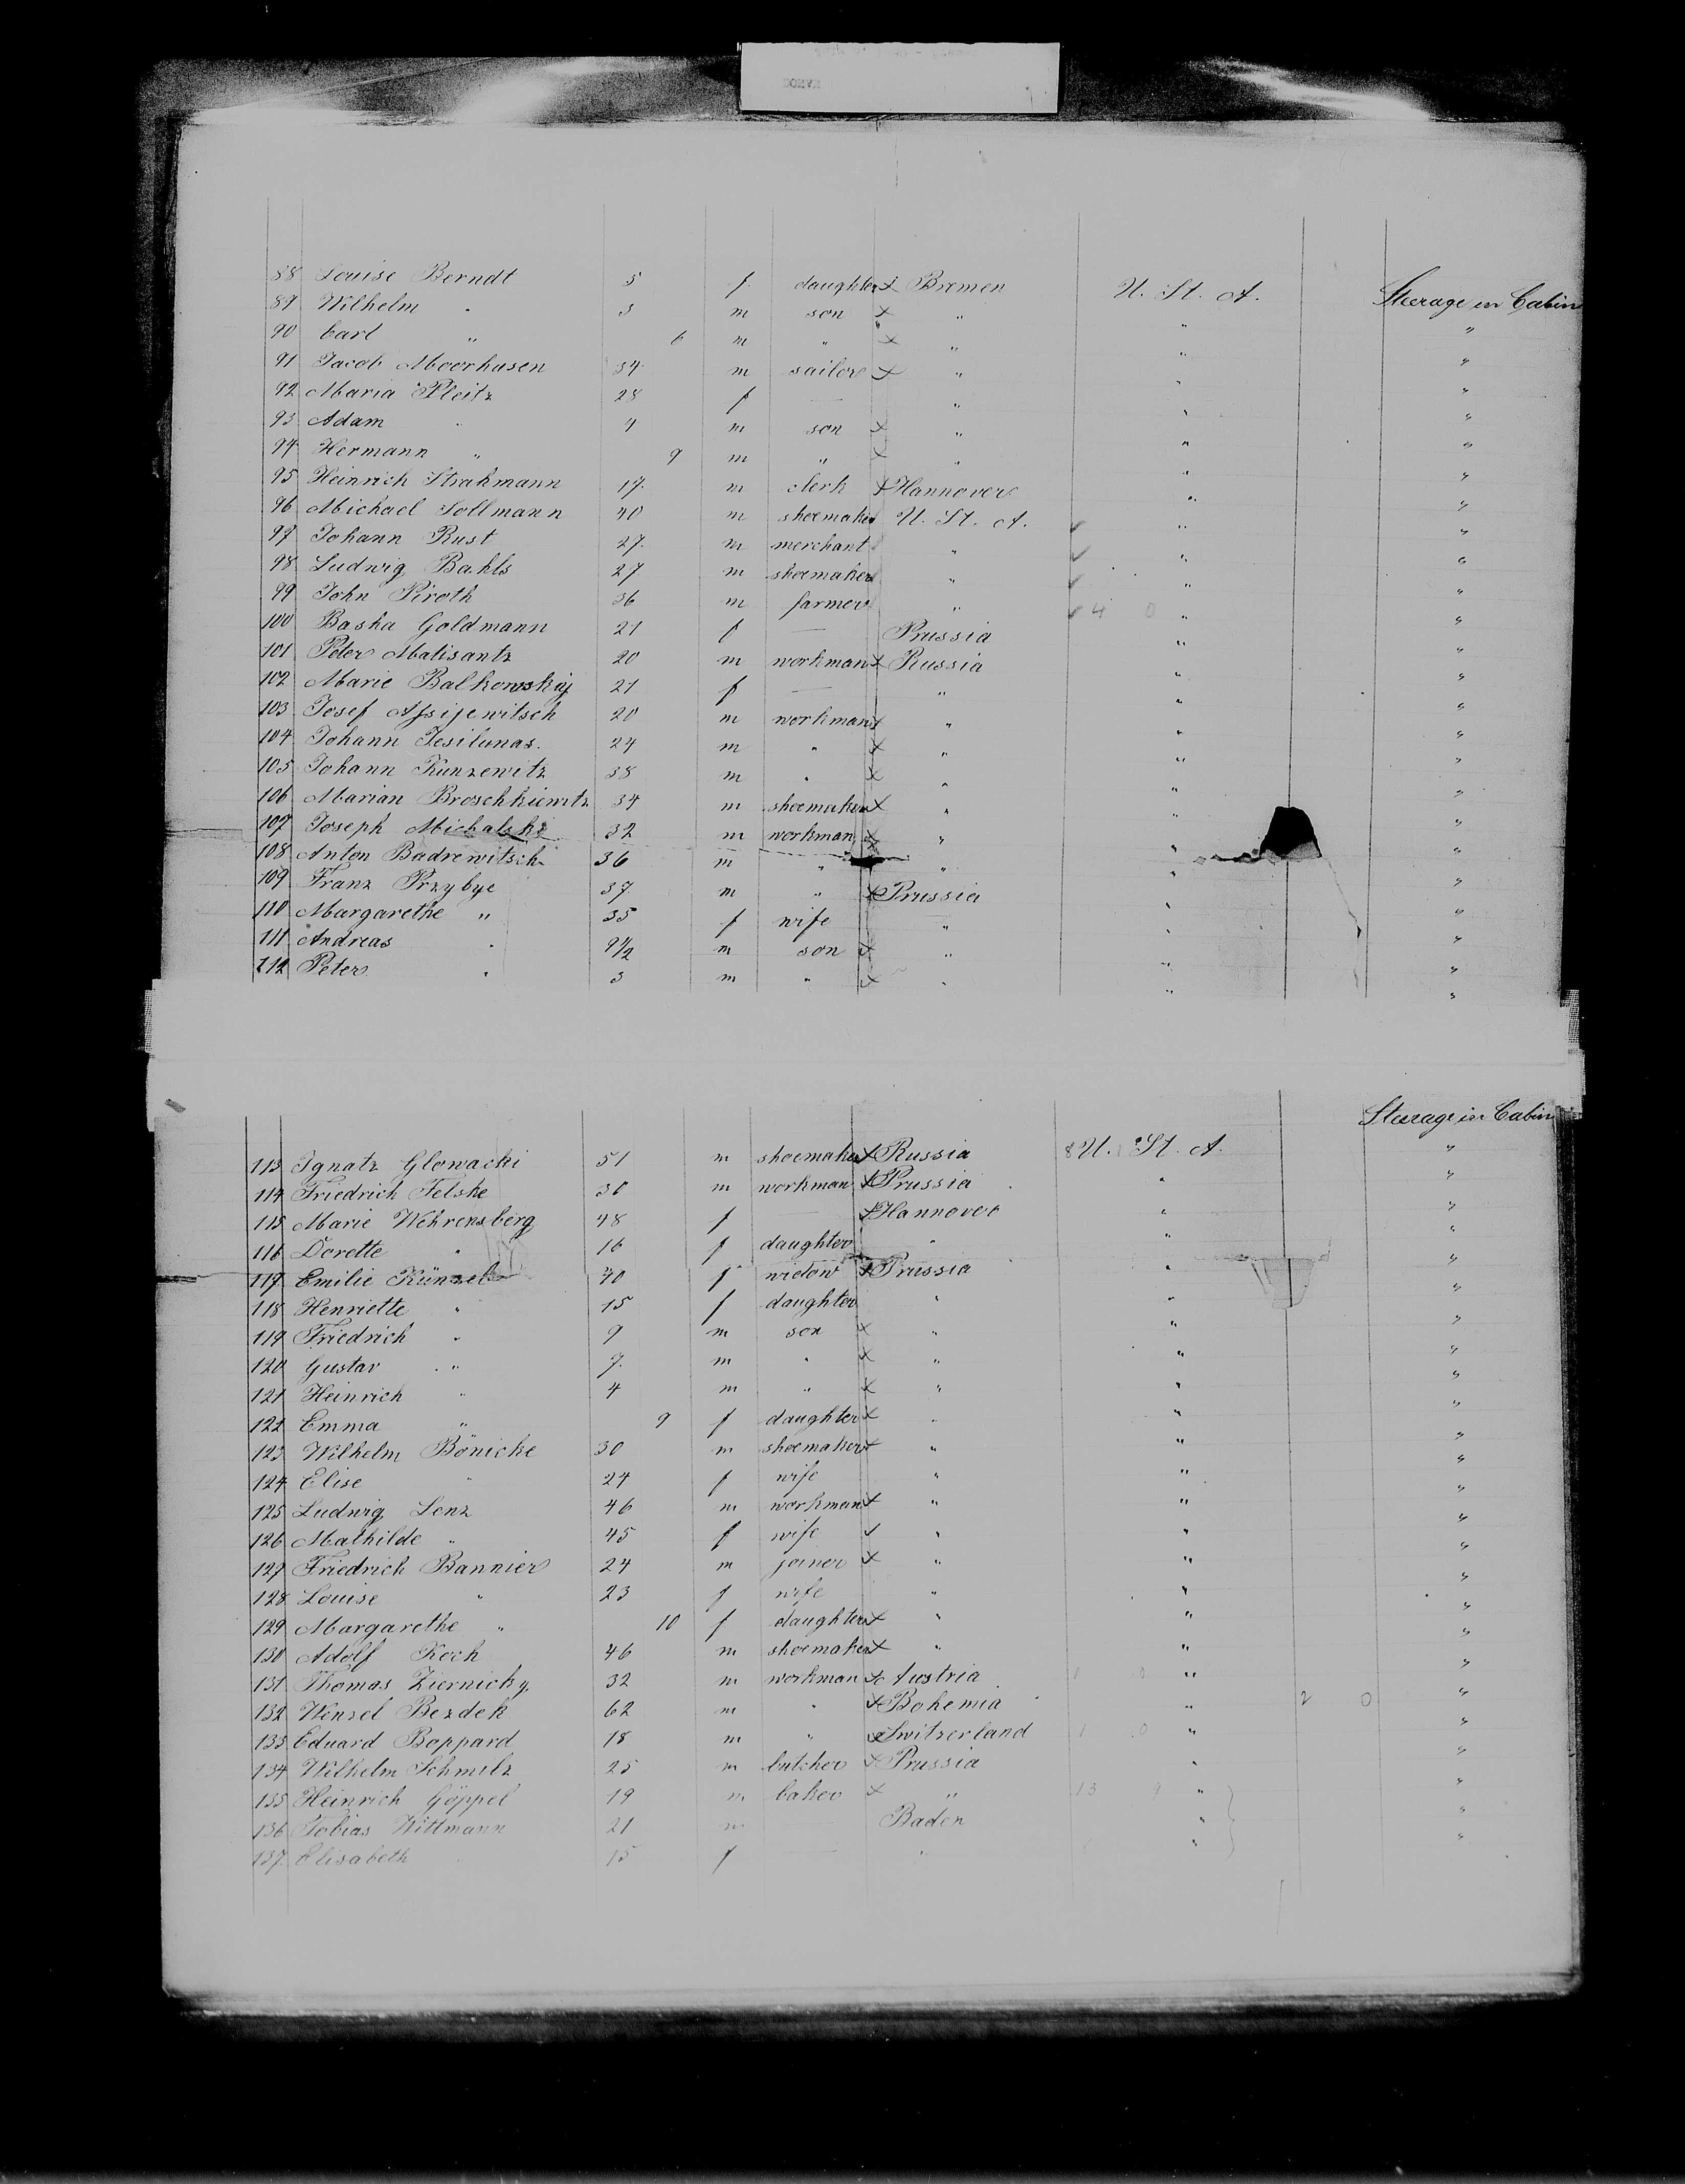 88 Louise Berndt 5 f. daughter x Bremen U. St. A. Steerage in Cabin
89 Wilhelm " 3 m son x " " "
90 Carl " 6 m " x " " "
91 Jacob Moorhusen 34 m sailor x " " "
92 Maria Pleitz 28 f — " " "
93 Adam " 4 m son x " " "
94 Hermann " 9 m " x " " "
95 Heinrich Strahmann 17. m clerk x Hannover " "
96 Michael Sollmann 40 m shoemaker U. St. A. " "
97 Johann Rust 27. m merchant " " "
98 Ludwig Bahls 27 m shoemaker " " "
99 John Piroth 36 m farmer " 4 0 " "
100 Basha Goldmann 21 f — Prussia " "
101 Peter Matisantz 20 m workman x Russia " "
102 Marie Balkowskij 21 f — " " "
103 Josef Assijewitsch 20 m workman x " " "
104 Johann Jesilunas. 24 m " x " " "
105 Johann Kunzewitz 38 m " x " " "
106 Marian Broschkiewitz 34 m shoemaker x " " "
107 Joseph Michalski 32 m workman x " " "
108 Anton Badrewitsch 36 m " x " " "
109 Franz Przybye 37 m " x Prussia " "
110 Margarethe " 35 f wife " " "
111 Andreas " 9 1/2 m son x " " "
112 Peter " 3 m " x " " "
Steerage in Cabin
113 Ignatz Glowacki 51 m shoemaker x Russia 8 U. St. A. "
114 Friedrich Felske 30 m workman x Prussia " "
115 Marie Wehrensberg 48 f — x Hannover " "
116 Dorette " 16 f daughter " " "
117 Emilie Künzel 40 f widow x Prussia " "
118 Henriette " 15 f daughter " " "
119 Friedrich " 9 m son x " " "
120 Gustav " 7. m " x " " "
121 Heinrich " 4 m " x " " "
122 Emma " 9 f daughter x " " "
123 Wilhelm Bönicke 30 m shoemaker x " " "
124 Elise " 24 f wife " " "
125 Ludwig Lenz 46 m workman x " " "
126 Mathilde " 45 f wife x " " "
127 Friedrich Bannier 24 m joiner x " " "
128 Louise " 23 f wife " " "
129 Margarethe " 10 f daughter x " " "
130 Adolf Koch 46 m shoemaker x " " "
131 Thomas Ziernicky 32 m workman x Austria 1 0 " "
132 Wenzel Bezdek 62 m " x Bohemia " 2 0 "
133 Eduard Boppard 18 m " x Switzerland 1 0 " "
134 Wilhelm Schmilz 25 m butcher x Prussia " "
135 Heinrich Göppel 19 m baker x " 13 9 " "
136 Tobias Wittmann 21 m — Baden " "
137. Elisabeth " 15 f — " " "